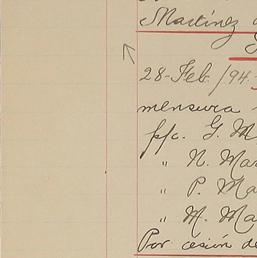 Martínez
28-Feb./94.
mensura
p/c. G. M
" N. Mar
" P. Ma
" M. Ma
Por cesión de